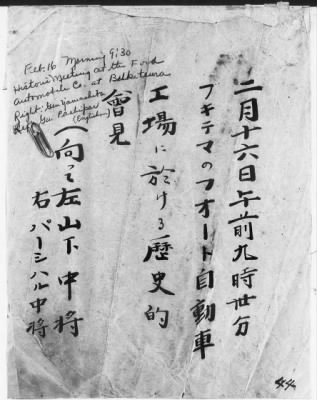 Feb. 16 Morning 9:30
Historic Meeting at the Ford
Automobile Co. at Bukitema
Right: Gen Yamashita
Left: Gen Pacibar
(English)
二月十六日午前九時卅分
フキテマのフオード自動車
工場に於ける歴史的
會見
(向って左山下中将
右パーシハル中将